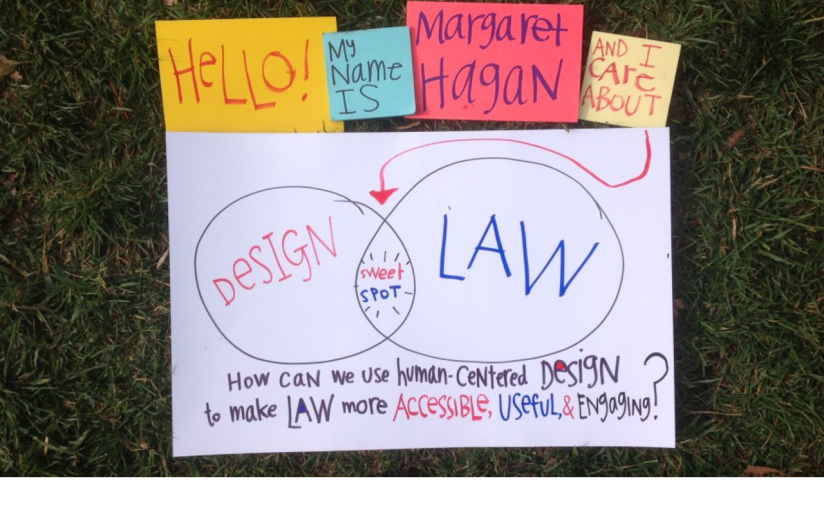 HeLLO!
My
Name
IS
Margaret
HAGAN
AND I
CAre
ABOUT
DeSIGN
LAW
sweet
SPOT
HOW CAN we use human-CeNtered DesigN
to make LAW more ACCESSIBLE, USefuL, & ENgAgiNg?